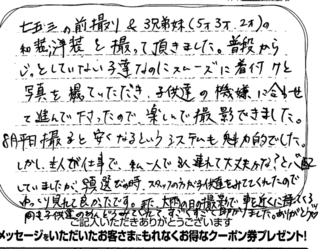 七五三の前撮り & 3兄弟妹(5才3才、2才)の
和装洋装を撮って頂きました。普段から
じっとしていない子達なのにスムーズに着付けと
写真を撮っていただき、子供達の機嫌に合わせ
て進んで下さったので、楽しんで撮影できました。
8月平日撮ると安くなるというシステムも魅力的でした。
しかし主人が仕事で、私一人で3人連れて大丈夫かな?と心配
していましたが、選ぶ時、スタッフの方が子供達をみてくれたので
ゆっくり見れて良かったです。また、大雨の日の撮影で車を近くに
子供達のめんどうみてくれて、すごくすごく助かりました。ありがとう
ご記入いただきありがとうございます
メッセージをいただいたお客さまにもれなくお得なクーポン券プレゼント!